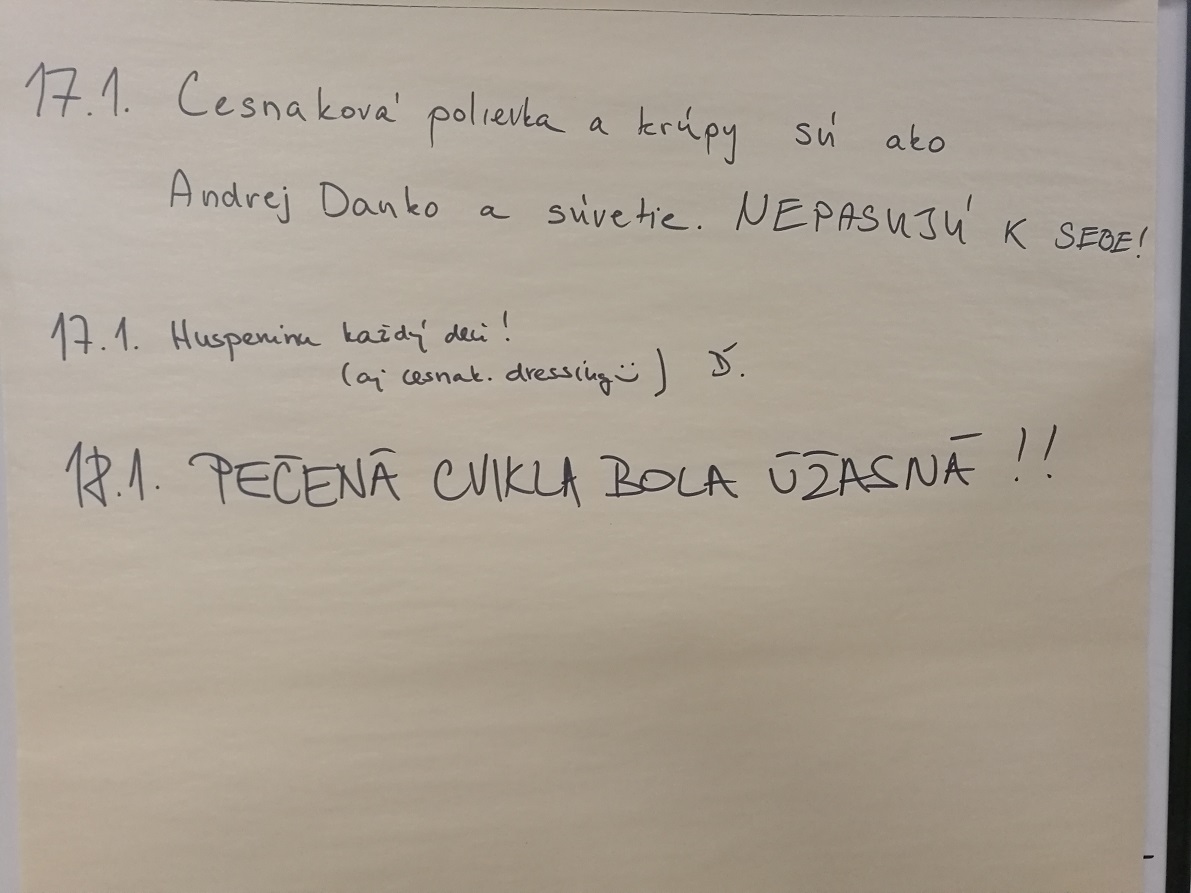 17.1. Cesnaková polievka a krúpy sú ako
Andrej Danko a súvetie. NEPASUJÚ K SEBE!
17.1. Huspeninu každý deň!
(aj cesnak. dressing ü) Ď.
18.1. PEČENÁ CVIKLA BOLA ÚŽASNÁ !!